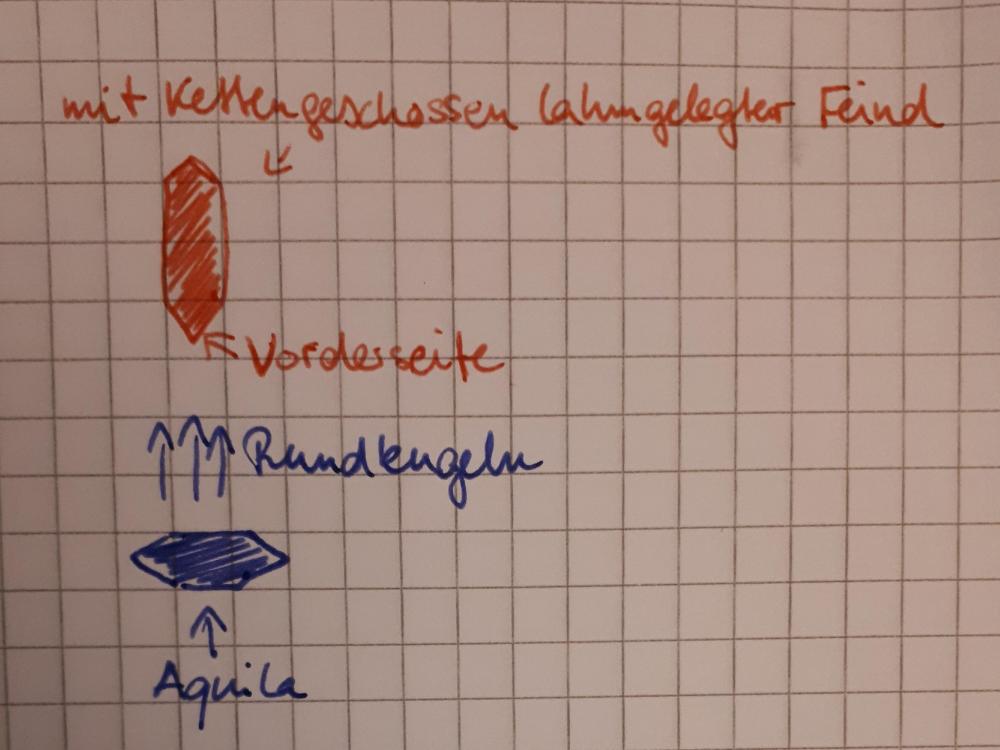 mit Kettengeschossen lahmgelegter Feind
Vorderseite
Rundkugeln
Aquila